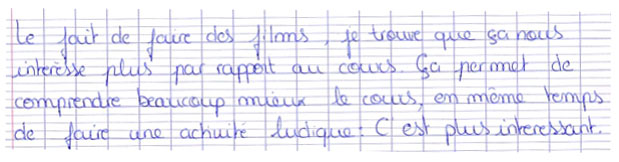 Le fait de faire des films, je trouve que ça nous
interesse plus par rapport au cours. Ça permet de
comprendre beaucoup mieux le cours, en même temps
de faire une activité ludique. C'est plus interessant.